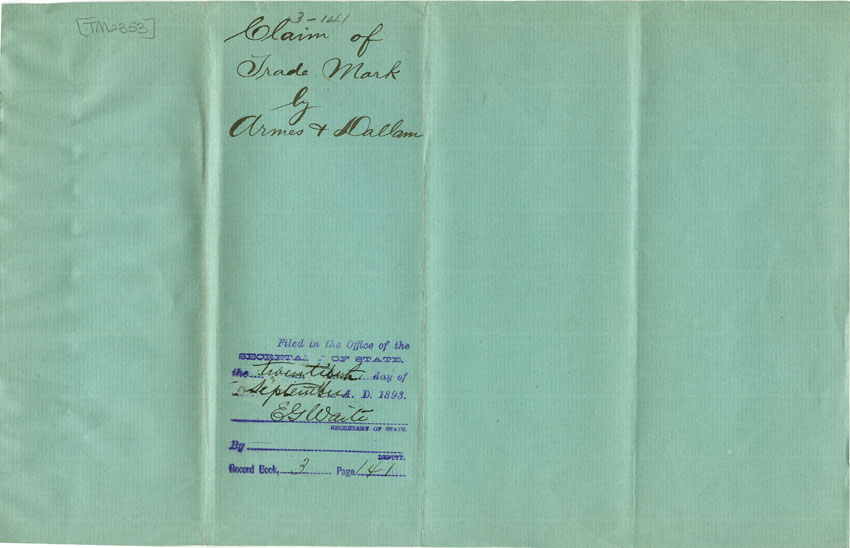 [TM2353]
3-141
Claim of
Trade Mark
by
Armes & Dallam
Filed in the Office of the
SECRETA OF STATE.
the twentieth day of
September A. D. 1893.
E G Waite
SECRETARY OF STATE.
By
DEPUTY.
Record Book, 3 Page 141